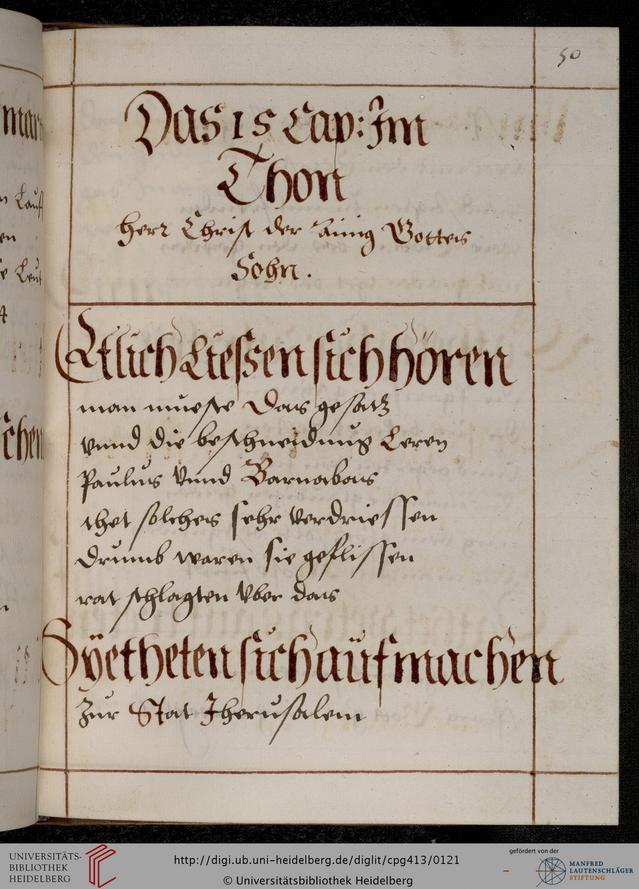 50
Das 15 Cap: Im
Thon
Herr Christ der Einig Gottes
Sohn.
Etlich Liessen sich hören
man mueste Das gesatz
vnnd die beschneidung Leren
Paulus Vnnd Barnabas
thet solches sehr verdriessen
drumb waren sie geflissen
rat schlagten vber das
Syethetensichaufmachen
Zur Stat Jherusalem
UNIVERSITÄTS-
BIBLIOTHEK
HEIDELBERG
http://digi.ub.uni-heidelberg.de/diglit/cpg413/0121
© Universitätsbibliothek Heidelberg
gefördert von der
MANFRED
LAUTENSCHLÄGER
STIFTUNG